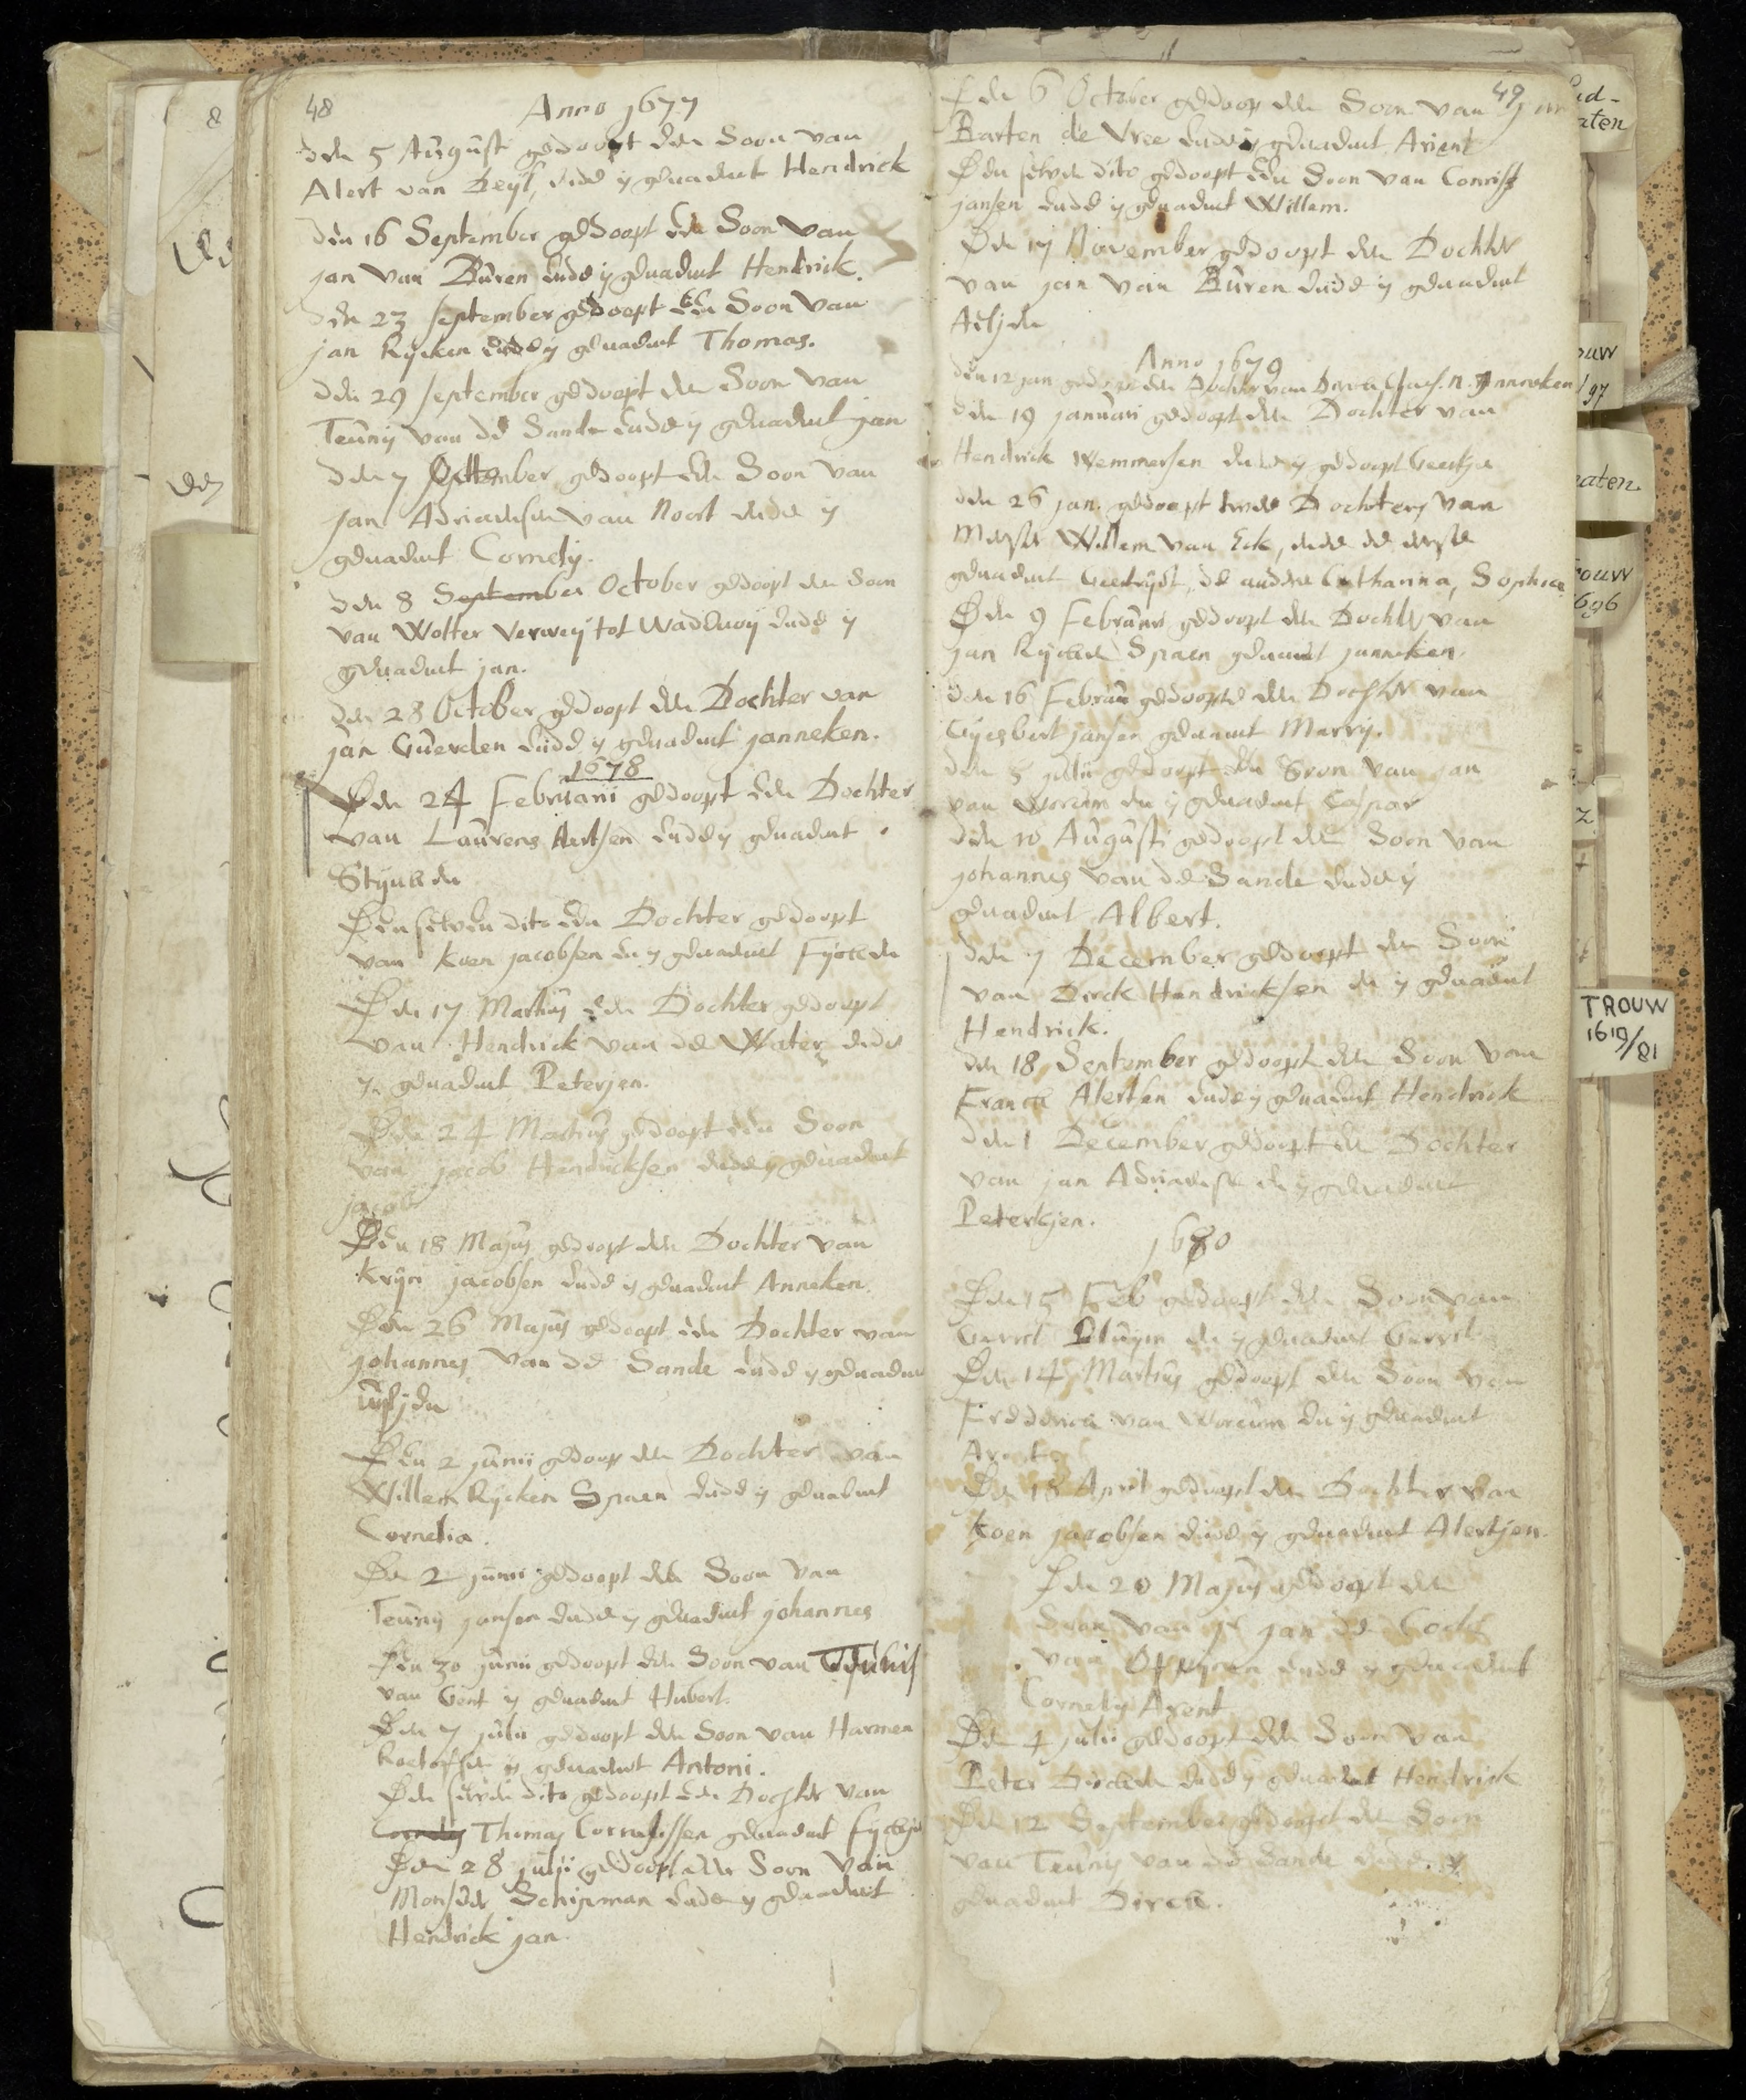 48
Anno 1677
den 5 August gedoopt een Soon van
Alert van Deyl, ende is genaemt Hendrick
den 16 September gedoopt een Soon van
jan van Buren ende is genaemt Hendrick.
den 23 september gedoopt een Soon van
jan Rycken ende is genaemt Thomas.
den 29 september gedoopt een Soon van
Teunis van de Sande ende is genaemt jan
den 7 gedoopt een Soon van
jan Adriaensen van Noort ende is
genaemt Cornelis.
den 8 September October gedoopt een Soon
van Wolter Verweij tot Wadenoij ende is
genaemt jan.
den 28 October gedoopt een Dochter van
jan Guerden ende is genaemt janneken.
1678
Den 24 Februarii gedoopt een Dochter
van Laurens Aertsen ende is genaemt
Stijnken
Den selven dito een Dochter gedoopt
van Koen jacobsen en is genaemt Fijcken
Den 17 Martius een Dochter gedoopt
van Hendrick van de Water ende
is genaemt Peterjen.
Den 24 Martius gedoopt een Soon
van jacob Hendricksen ende is genaemt
jacob
Den 18 Majus gedoopt een Dochter van
Krijn jacobsen ende is genaemt Anneken.
Den 26 Majus gedoopt een Dochter van
johannes van de Sande ende is genaemt
Den 2 junii gedoop een Dochter van
Willem Rycken Spaen ende is genaemt
Cornelia.
Den 2 junii gedoopt een Soon van
Teunis jansen ende is genaemt johannes
Den 30 junii gedoopt een Soon van Teunis
van Gent is genaemt Hubert.
Den 7 julii gedoopt een Soon van Harmen
Roelofsen is genaemt Antoni.
Den selven dito gedoopt een Dochter van
Cornelis Thomas Cornelissen genaemt Fyckjen
Den 28 julii gedoopt een Soon van
Monsr Schipman ende is genaemt
Hendrick jan.
49
Den 6 October gedoop een Soon van
Barten de Vree ende is genaemt Arient
Den selven dito gedoopt een Soon van
jansen ende is genaemt Willem.
Den 17 November gedoopt een Dochter
van jan van Buren ende is genaemt
Aeltjen
Anno 1679
den 12 jan gedoopt een Dochter van n. Anneken
den 19 januari gedoopt een Dochter van
Hendrick Wemmersen ende is gedoopt Geertje
den 26 jan. gedoopt twee Dochters van
Meester Willem van Eck, ende de eerste
genaemt Geertruyt, de andere Catharina, Sophia
Den 9 Februari gedoopt een Dochter van
jan Rycken Spaen genaemt janneken.
den 16 Februa gedoopt een Dochter van
Gysbert jansen genaemt Marry.
den 5 julii gedoopt een Soon van jan
van Worcum en is genaemt Caspar
den 10 Augusti gedoopt een Soon van
johannes van de Sande ende is
genaemt Albert.
den 7 December gedoopt een Soon
van Dirck Handricksen en is genaemt
Hendrick.
den 18 September gedoopt een Soon van
Franck Alertsen ende is genaemt Hendrick
den 1 December gedoopt een Dochter
van jan Adriaense en is genaemt
Peterkjen.
1680
Den 15 Feb gedoopt een Soon van
Gerrit Pluijm en is genaemt Gerrit
Den 14 Martius gedoopt een Soon van
Fredderick van Worcum en is genaemt
Arent
Den 18 April gedoopt een Dochter van
Koen jacobsen ende is genaemt Alertjen.
Den 20 Majus gedoopt een
Soon van jr jan de Cock
van Opijnen ende is genaemt
Cornelis Arent
Den 4 julii gedoopt een Soon van
Peter Dircksen ende is genaemt Hendrick
Den 12 September gedoopt een Soon
van Teunis van de Sande ende is
genaemt Dirck.
TROUW
1619/81